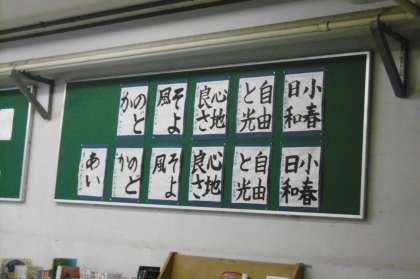 小春日和
自由と光
心地良さ
そよ風
のどか
小春日和
自由と光
心地良さ
そよ風
のどか
あい